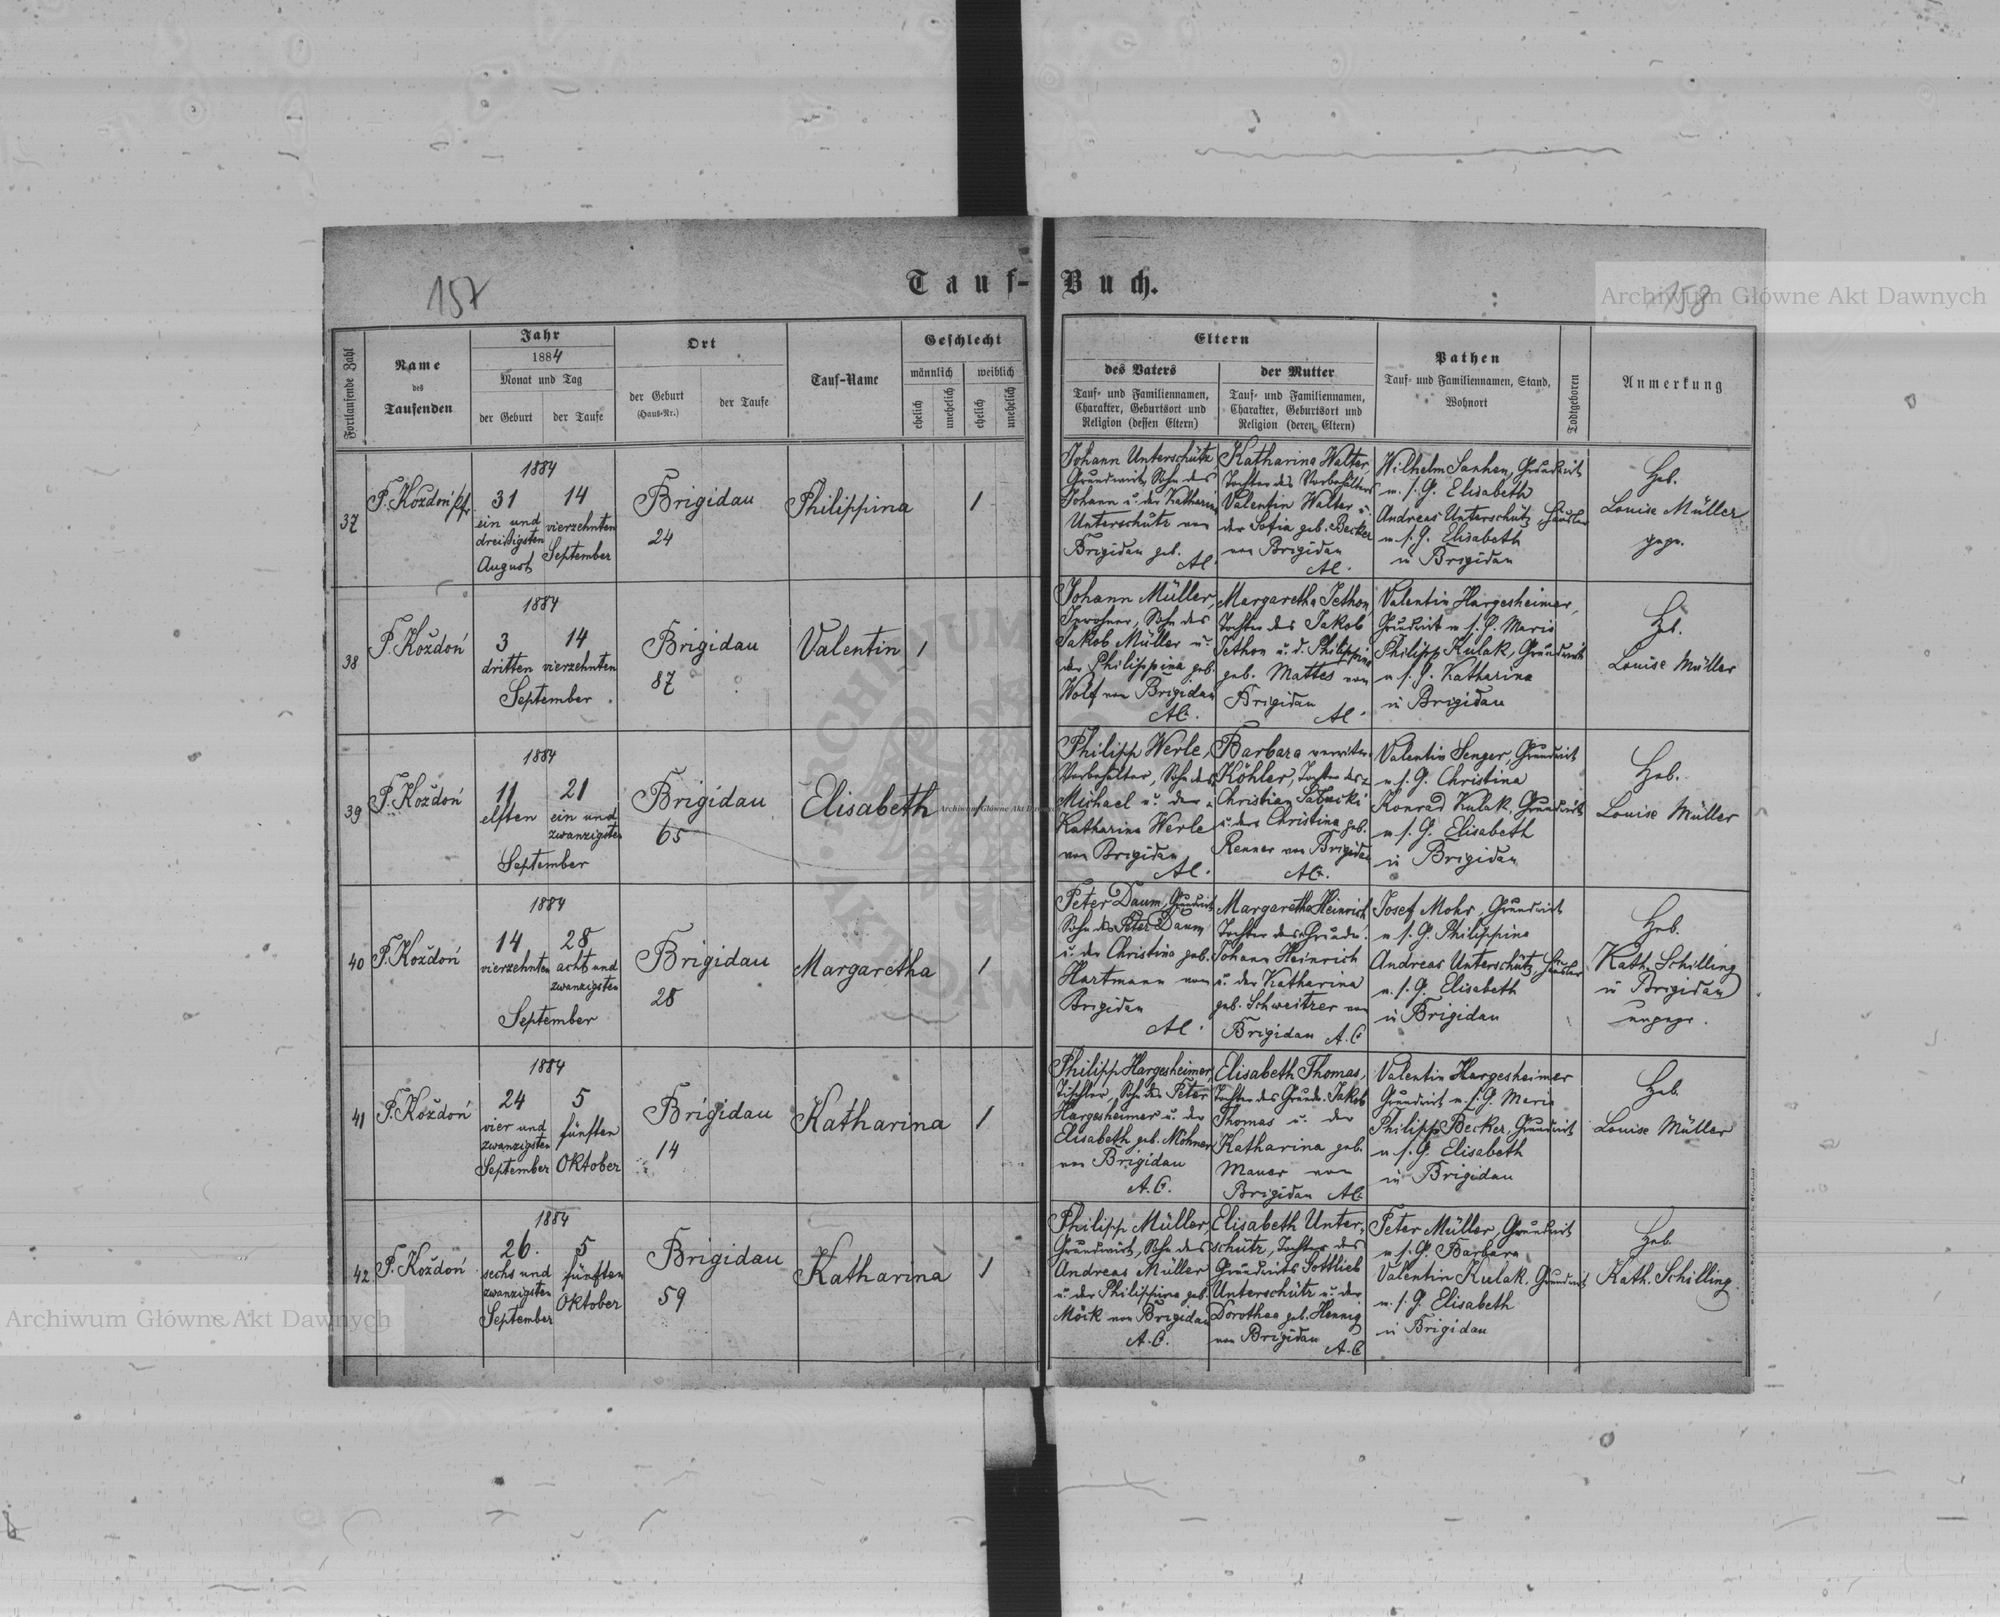 157
Tauf-Buch.
158
Archiwum Główne Akt Dawnych
Fortlaufende Zahl
Name
des
Taufenden
Jahr
1884
Monat und Tag
der Geburt
der Taufe
Ort
der Geburt
(Haus-Nr.)
der Taufe
Tauf-Name
Geschlecht
männlich
weiblich
ehelich
unehelich
ehelich
unehelich
Eltern
des Vaters
Tauf- und Familiennamen,
Charakter, Geburtsort und
Religion (dessen Eltern)
der Mutter
Tauf- und Familiennamen,
Charakter, Geburtsort und
Religion (deren Eltern)
Pathen
Tauf- und Familiennamen, Stand,
Wohnort
Todtgeboren
Anmerkung
37
P. Kozdoń
1884
31
ein und
dreißigsten
August
14
vierzehnten
September
Brigidau
24
Philippina
1
Johann Unterschütz
Grundwirt, Sohn des
Johann u. der Katharina
Unterschütz von
Brigidau geb.
AC.
Katharina Walter,
Tochter des Vorbehälters
Valentin Walter u.
der Sofia geb. Becker
von Brigidau
AC.
Wilhelm Sanhen, Grundwirt
u. s. G. Elisabeth
Andreas Unterschütz, Häusler
u. s. G. Elisabeth
in Brigidau
Heb.
Louise Müller
gepr.
38
P. Kozdoń
1884
3
dritten
14
vierzehnten
September
Brigidau
87
Valentin
1
Johann Müller,
Inwohner, Sohn des
Jakob Müller u.
der Philippina geb.
Wolf von Brigidau
AC.
Margaretha Jethon
Tochter des Jakob
Jethon u. d. Philippina
geb. Mattes von
Brigidau
AC.
Valentin Hargesheimer,
Grundwirt u. s. G. Maria
Philipp Kulak, Grundwirt
u. s. G. Katharina
in Brigidau
Heb.
Louise Müller
39
P. Kozdoń
1884
11
elften
21
ein und
zwanzigsten
September
Brigidau
65
Elisabeth
1
Philipp Werle,
Vorbehälter, Sohn des
Michael u. der
Katharina Werle
von Brigidau
AC.
Barbara verwitw.
Köhler, Tochter des
Christian
u. der Christina geb.
Renner von Brigidau
AC.
Valentin Senger, Grundwirt
u. s. G. Christina
Konrad Kulak, Grundwirt
u. s. G. Elisabeth
in Brigidau
Heb.
Louise Müller
40
P. Kozdoń
1884
14
vierzehnten
28
acht und
zwanzigsten
September
Brigidau
28
Margaretha
1
Peter Daum, Grundwirt
Sohn des Peter Daum
u. der Christina geb.
Hartmann von
Brigidau
AC.
Margaretha Heinrich
Tochter des Grundw.
Johann Heinrich
u. der Katharina
geb. Schweitzer von
Brigidau A.C.
Josef Mohr, Grundwirt
u. s. G. Philippina
Andreas Unterschütz, Häusler
u. s. G. Elisabeth
in Brigidau
Heb.
Kath. Schilling
in Brigidau
ungepr.
41
P. Kozdoń
1884
24
vier und
zwanzigsten
September
5
fünften
Oktober
Brigidau
14
Katharina
1
Philipp Hargesheimer,
Tischler, Sohn des Peter
Hargesheimer u. der
Elisabeth geb. Möhner
von Brigidau
A.C.
Elisabeth Thomas,
Tochter des Grundw. Jakob
Thomas u. der
Katharina geb.
Mauer von
Brigidau AC.
Valentin Hargesheimer
Grundwirt u. s. G. Maria
Philipp Becker, Grundwirt
u. s. G. Elisabeth
in Brigidau
Heb.
Louise Müller
42
P. Kozdoń
1884
26.
sechs und
zwanzigsten
September
5
fünften
Oktober
Brigidau
59
Katharina
1
Philipp Müller
Grundwirt, Sohn des
Andreas Müller
u. der Philippina geb.
Möik von Brigidau
A.C.
Elisabeth Unter-
schütz, Tochter des
Grundwirts Gottlieb
Unterschütz u. der
Dorothea geb. Hennig
von Brigidau
A.C.
Peter Müller, Grundwirt
u. s. G. Barbara
Valentin Kulak, Grundwirt
u. s. G. Elisabeth
in Brigidau
Heb.
Kath. Schilling.
Archiwum Główne Akt Dawnych